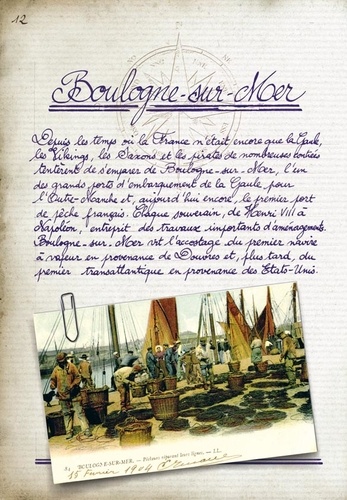 12
Boulogne-sur-Mer
Depuis les temps où la France n'était encore que la Gaule,
les Vikings, les Saxons et les pirates de nombreuses contrées
tentèrent de s'emparer de Boulogne-sur-Mer, l'un
des grands ports d'embarquement de la Gaule pour
l'Outre-Manche et, aujourd'hui encore, le premier port
de pêche français. Chaque souverain, de Henri VIII à
Napoléon, entreprit des travaux importants d'aménagements.
Boulogne-sur-Mer vit l'accostage du premier navire
à vapeur en provenance de Douvres et, plus tard, du
premier transatlantique en provenance des Etats-Unis.
BOULOGNE-SUR-MER. - Pêcheurs réparant leurs lignes. - LL.
15 Février 1904